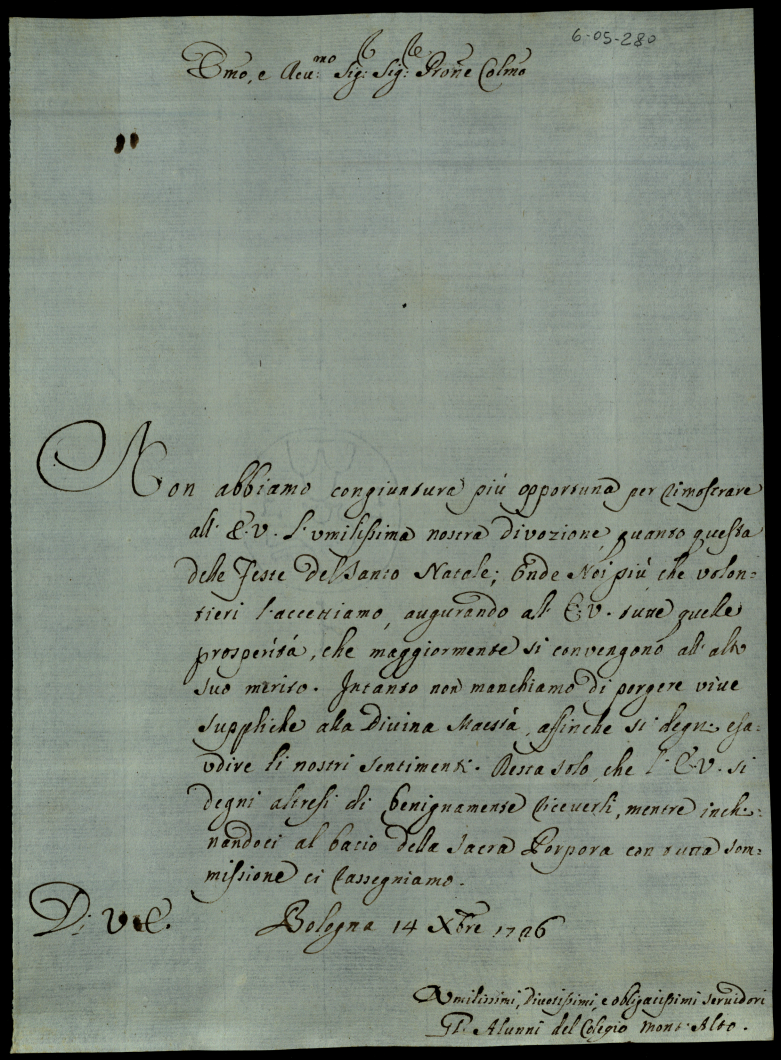 6-05-280
Emo, e Reu:mo Sig: Sig: Prone Colmo
Non abbiamo congiuntura più opportuna per dimostrare
all' E. V. l'umilissima nostra divozione, quanto questa
delle Feste del Santo Natale; Onde Noi più che volon=
tieri l'accettiamo, augurando all' E. V. tutte quelle
prosperità, che maggiormente si convengono all' alto
suo merito. Intanto non manchiamo di porgere vive
suppliche alla Divina Maestà, affinche si degni esa=
udire li nostri sentimenti. Resta solo, che l' E. V. si
degni altresi di benignamente riceverli, mentre inchi=
nandoci al bacio della Sacra Porpora con tutta som=
missione ci rassegniamo.
Di V. E. Bologna 14 Xbre 1726
Umilissimi, Divotissimi, e obligatissimi servidori
Gl: Alunni del Colegio Mont'Alto.